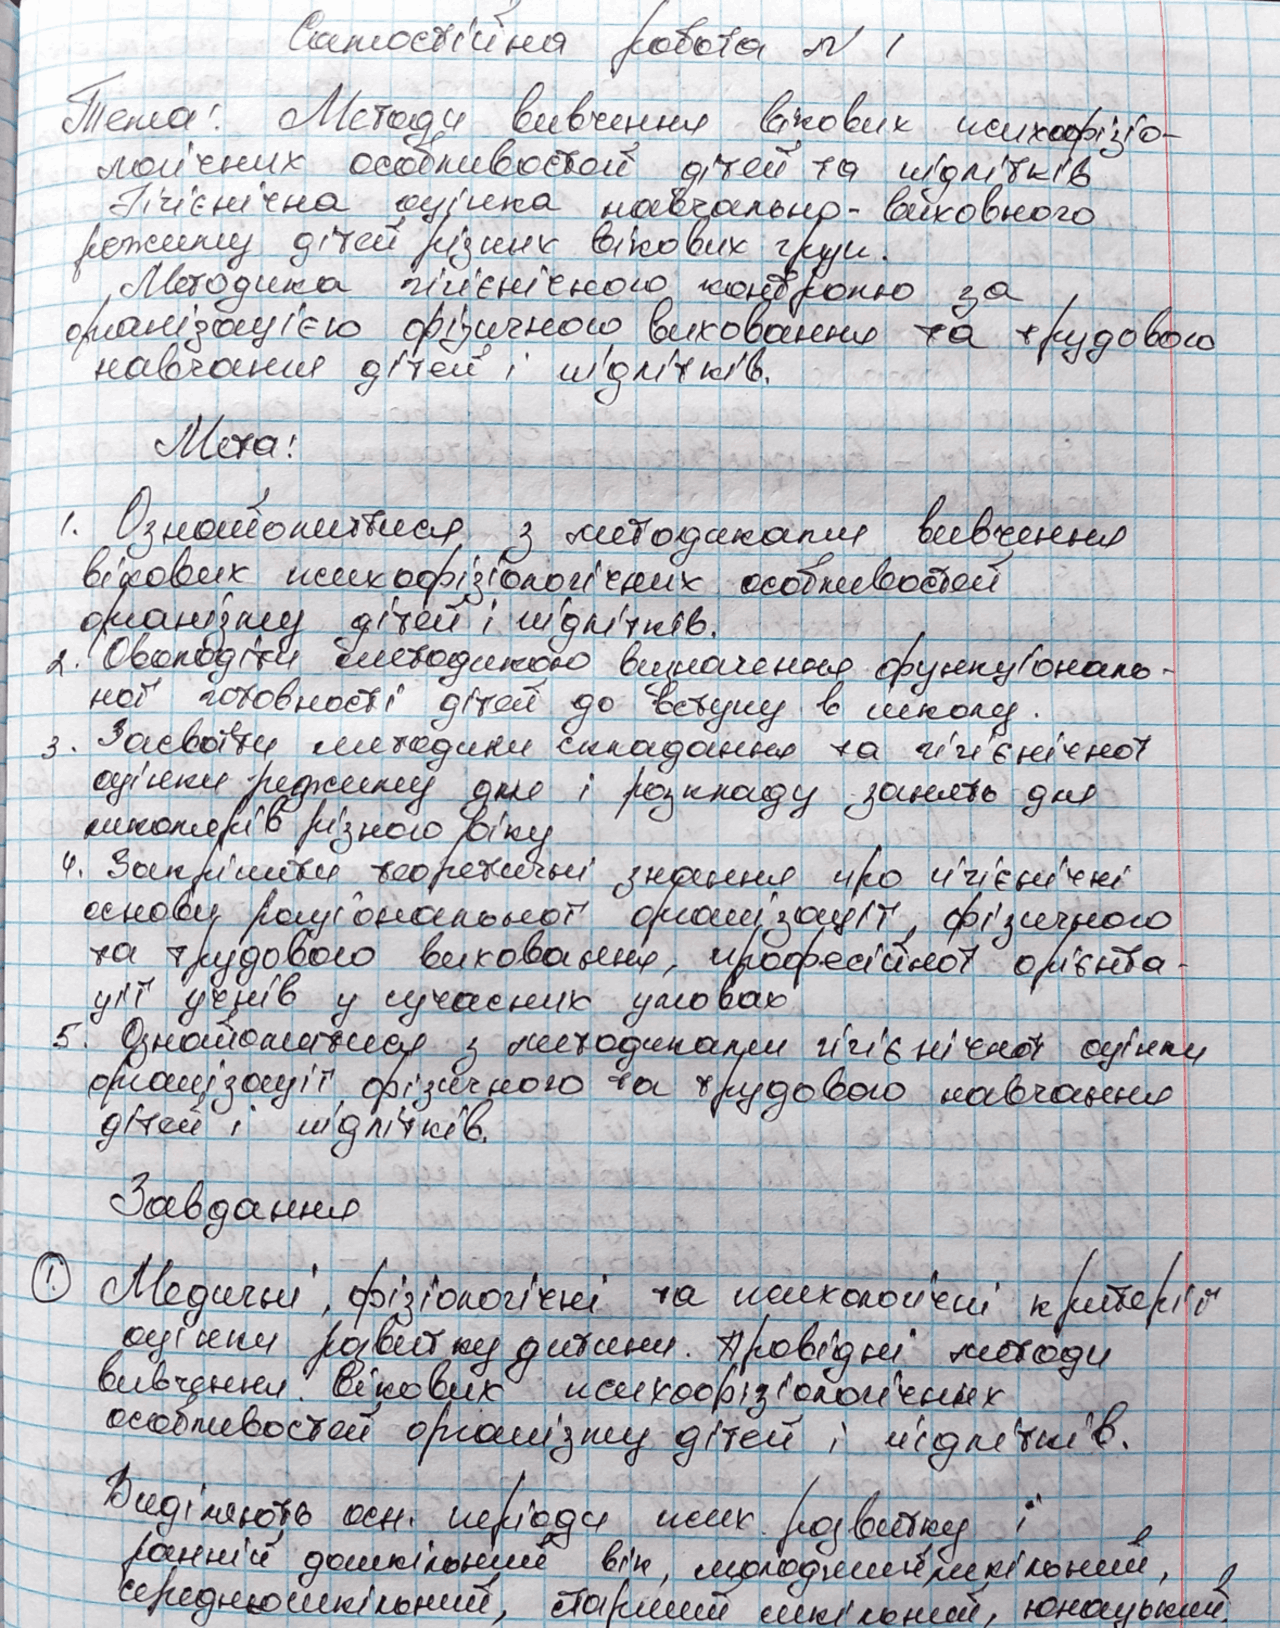 Самостійна робота №1
Тема: Методи вивчення вікових психофізіо-
логічних особливостей дітей та підлітків
Гігієнічна оцінка навчально-виховного
режиму дітей різних вікових груп.
Методика гігієнічного контролю за
організацією фізичного виховання та трудового
навчання дітей і підлітків.
Мета:
1. Ознайомитися з методиками вивчення
вікових психофізіологічних особливостей
організму дітей і підлітків.
2. Оволодіти методикою визначення функціональ-
ної готовності дітей до вступу в школу.
3. Засвоїти методики складання та гігієнічної
оцінки режиму дня і розкладу занять для
школярів різного віку
4. Закріпити теоретичні знання про гігієнічні
основи раціональної організації, фізичного
та трудового виховання, професійної орієнта-
ції учнів у сучасних умовах
5. Ознайомитися з методиками гігієнічної оцінки
організації фізичного та трудового навчання
дітей і підлітків.
Завдання
1. Медичні, фізіологічні та психологічні критерії
оцінки розвитку дитини. Провідні методи
вивчення вікових психофізіологічних
особливостей організму дітей і підлітків.
Виділяють осн. періоди псих. розвитку :
ранній дошкільний вік, молодший шкільний,
середньошкільний, старший шкільний, юнацький.